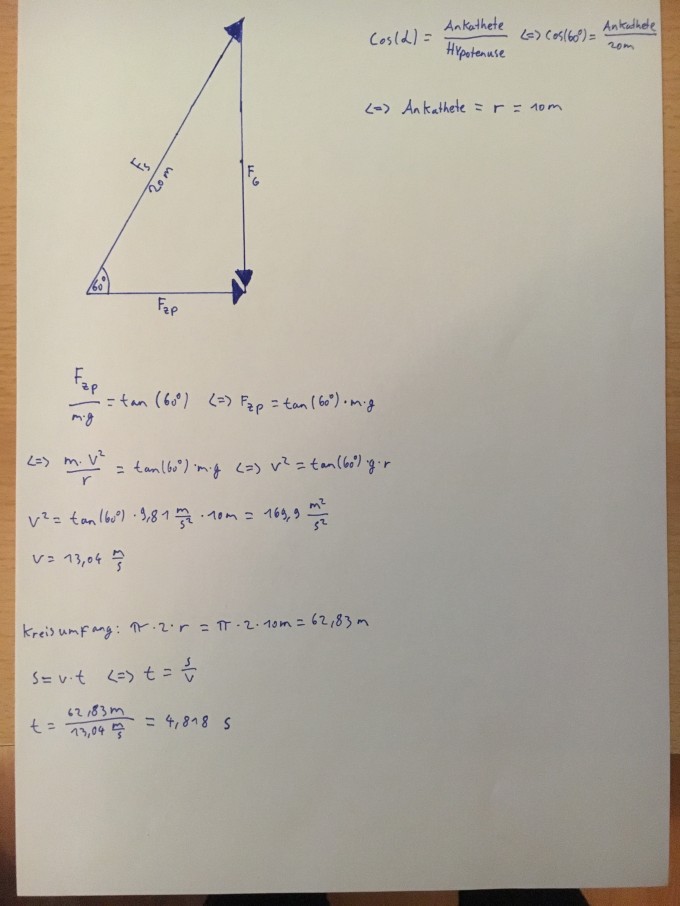 Cos(α) = Ankathete / Hypotenuse <=> Cos(60°) = Ankathete / 20m
<=> Ankathete = r = 10m
Fs
20 m
FG
60°
Fzp
Fzp / m·g = tan (60°) <=> Fzp = tan(60°)·m·g
<=> m·v² / r = tan(60°)·m·g <=> v² = tan(60°)·g·r
v² = tan(60°) · 9,81 m/s² · 10m = 169,9 m²/s²
v = 13,04 m/s
Kreisumfang: π·2·r = π·2·10m = 62,83m
s = v·t <=> t = s/v
t = 62,83m / 13,04 m/s = 4,818 s